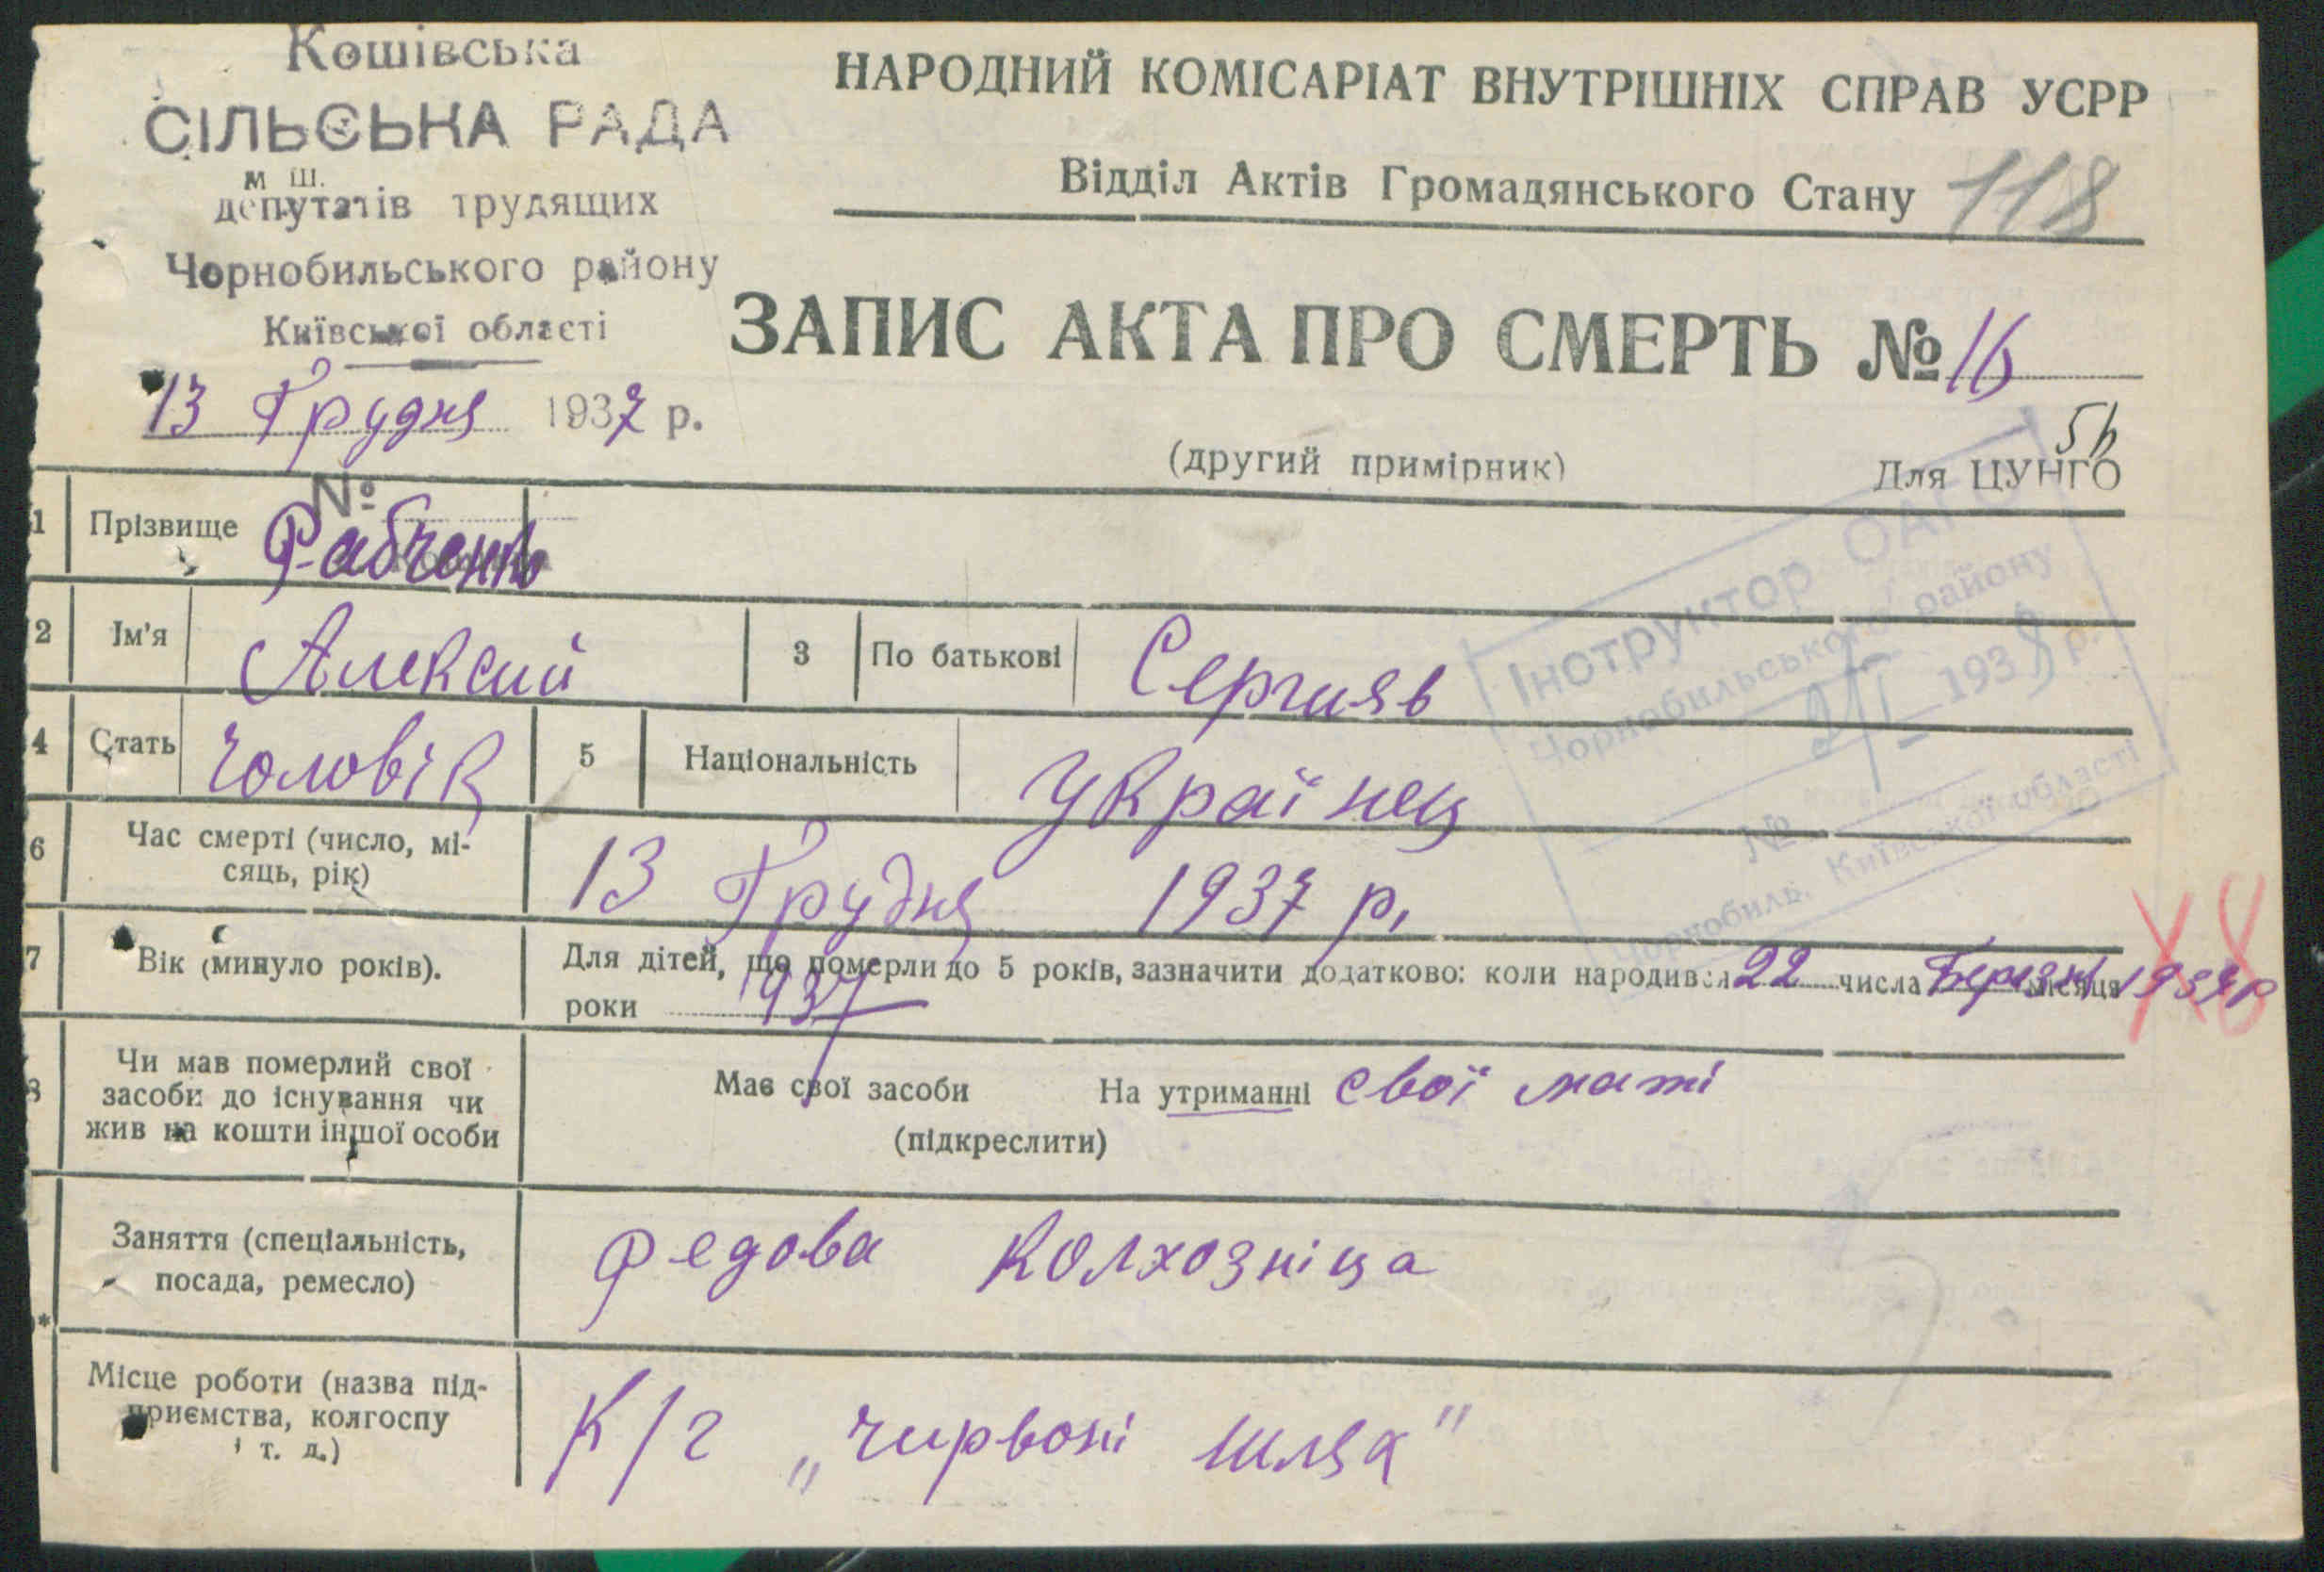 Кошівська
СІЛЬСЬКА РАДА
м ш.
депутатів трудящих
Чорнобильського району
Київської області
13 Грудня 1937 р.
№
НАРОДНИЙ КОМІСАРІАТ ВНУТРІШНІХ СПРАВ УСРР
Відділ Актів Громадянського Стану 118
ЗАПИС АКТА ПРО СМЕРТЬ № 16
(другий примірник)
Для ЦУНГО
Інструктор ОАГС
Чорнобильського району
193 р.
№
Чорнобиль, Київської області
1 Прізвище Рабченко
2 Ім'я Алексий 3 По батькові Сергияв
4 Стать Чоловік 5 Національність Українец
6 Час смерті (число, мі-
сяць, рік) 13 Грудня 1937 р.
7 Вік (минуло років). Для дітей, що померли до 5 років, зазначити додатково: коли народився 22 числа Березня місяця 1937 р
роки 1937
8 Чи мав померлий свої
засоби до існування чи
жив на кошти іншої особи
Має свої засоби На утриманні свої маті
(підкреслити)
Заняття (спеціальність,
посада, ремесло) Редова колхозніца
*
Місце роботи (назва під-
приємства, колгоспу
і т. д.) К/г „чирвоні шлях"